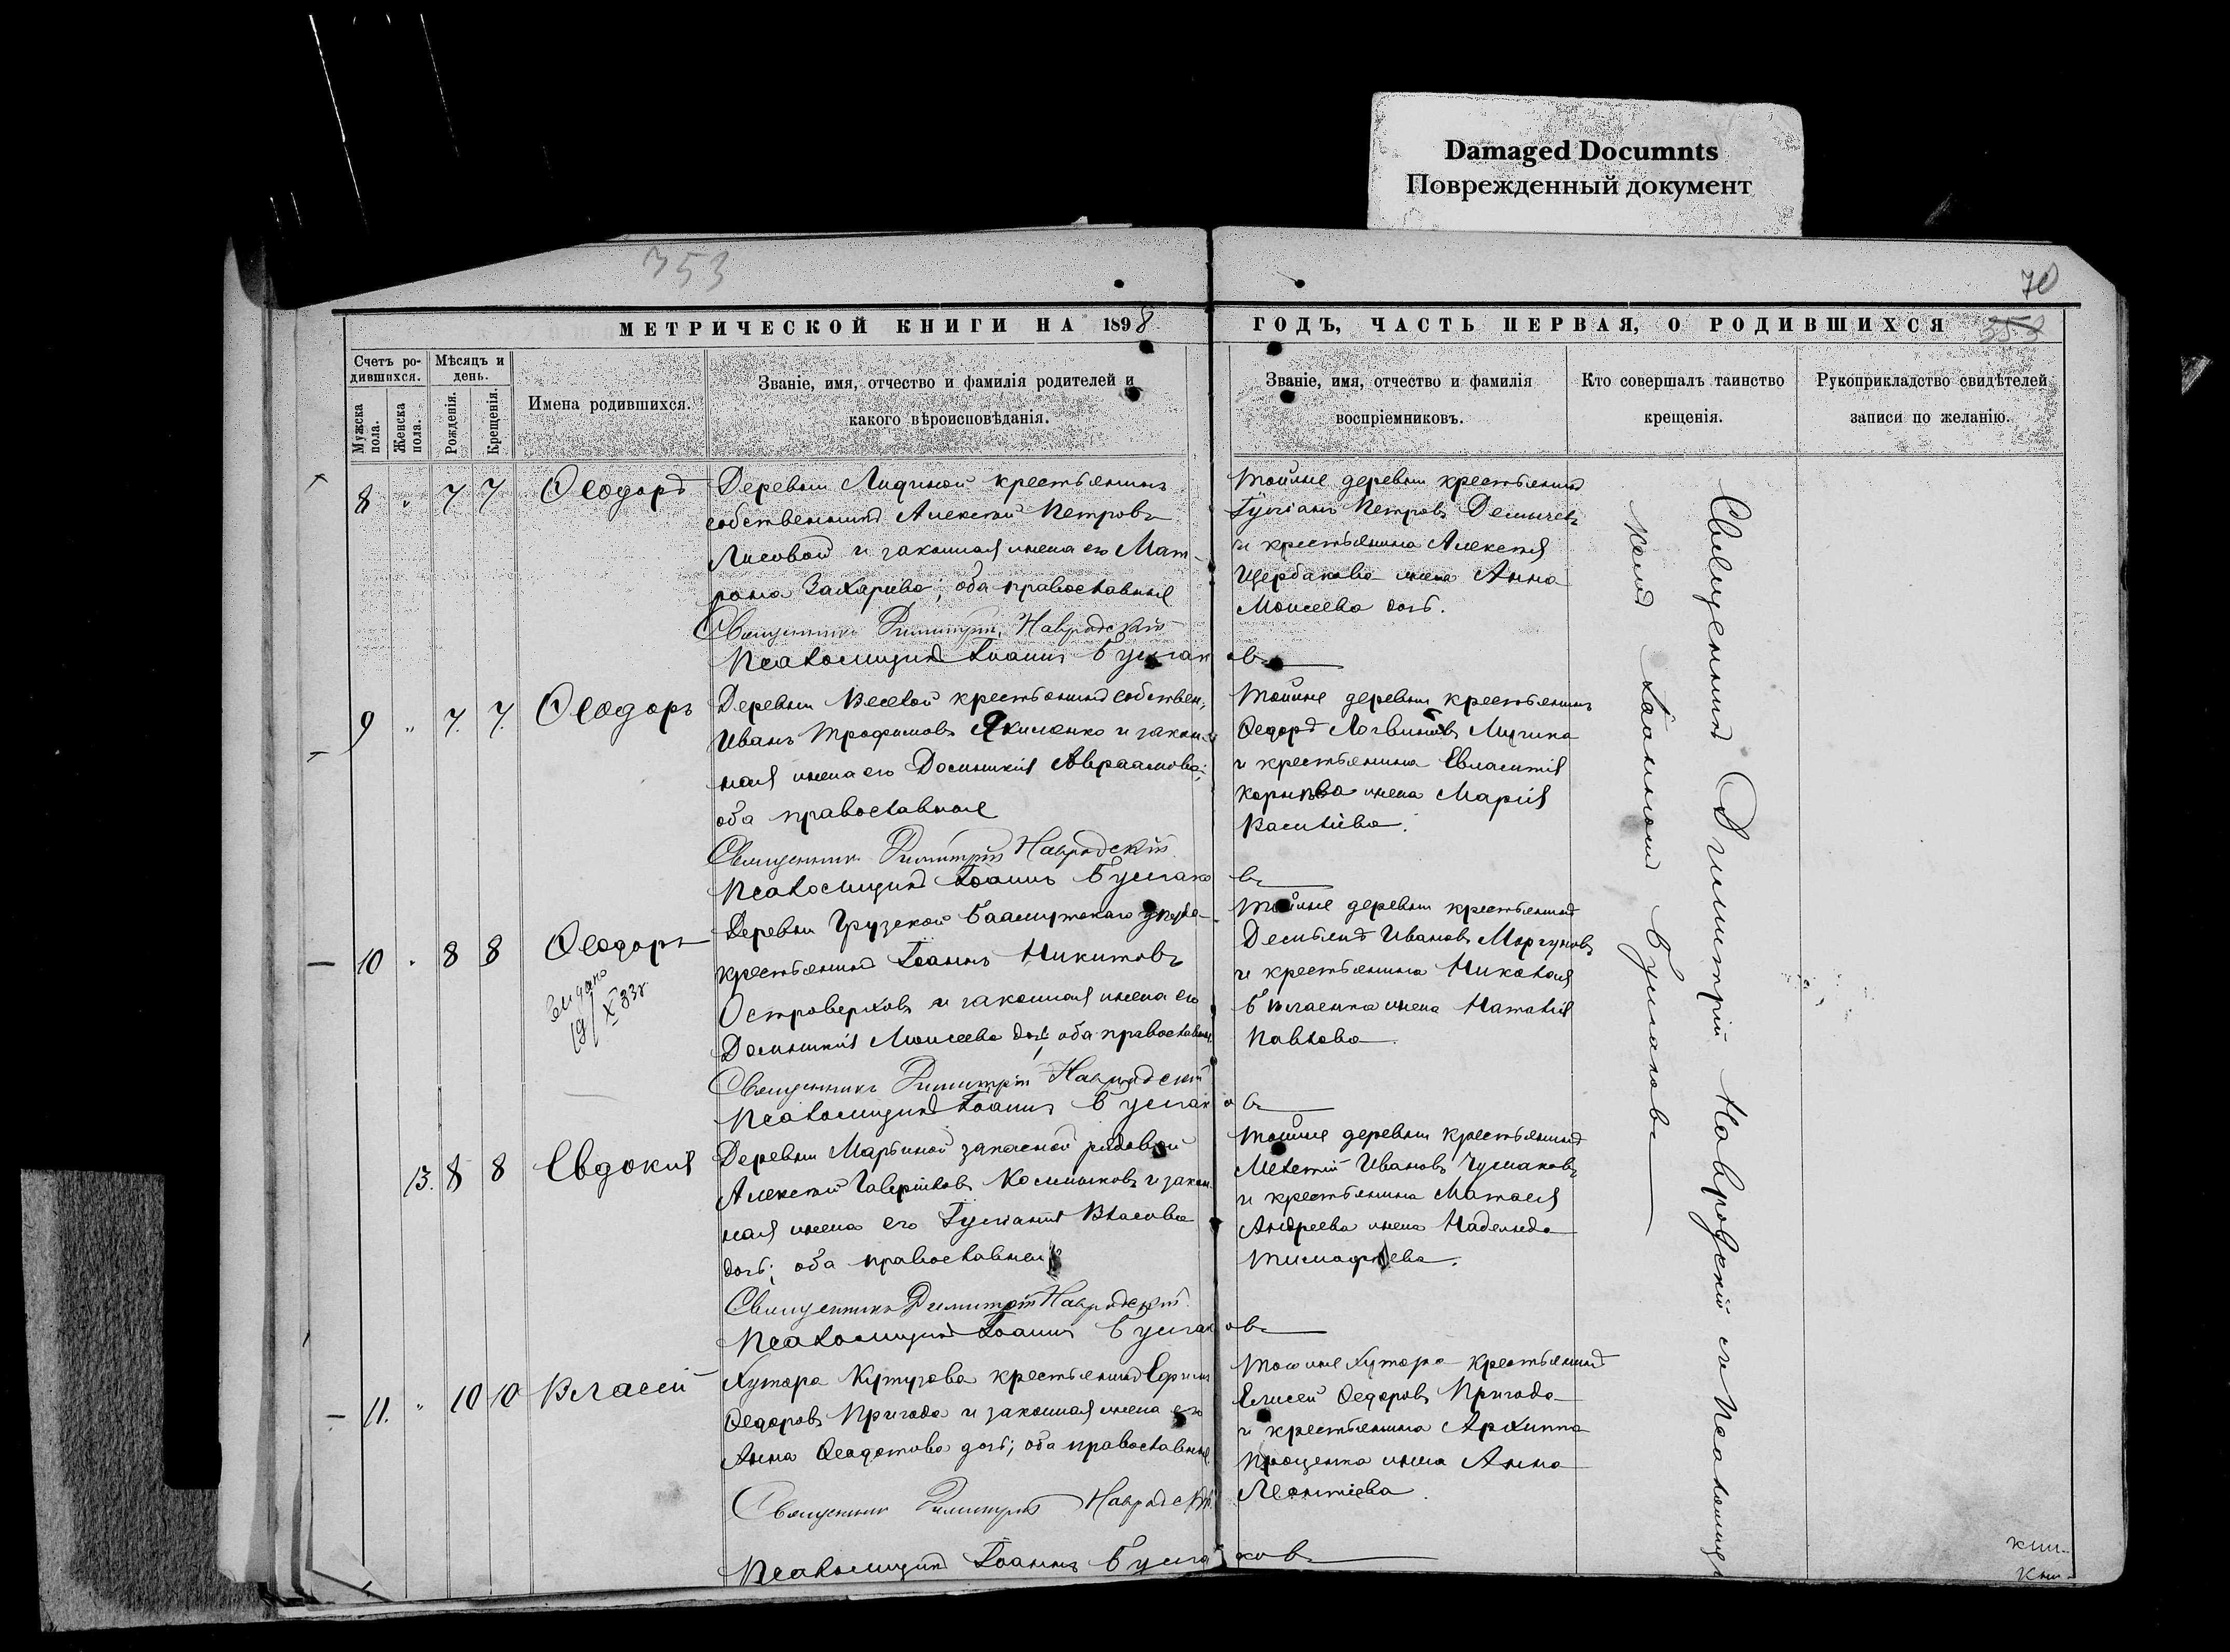 Damaged Documnts
Поврежденный документ
353
70
МЕТРИЧЕСКОЙ КНИГИ НА 1898
ГОДЪ, ЧАСТЬ ПЕРВАЯ, О РОДИВШИХСЯ
353
Счетъ ро-
дившихся.
Мужеска
пола.
Женска
пола.
Мѣсяцъ и
день.
Рожденія.
Крещенія.
Имена родившихся.
Званіе, имя, отчество и фамилія родителей и
какого вѣроисповѣданія.
Званіе, имя, отчество и фамилія
воспріемниковъ.
Кто совершалъ таинство
крещенія.
Рукоприкладство свидѣтелей
записи по желанію.
8 " 7 7 Ѳеодоръ
Деревни Лидиной крестьянинъ
собственникъ Алексѣй Петровъ
Лисовой и законная жена его Мат-
рона Захаріева; оба православные
Священникъ Димитрій Навродскій
Псаломщикъ Іоаннъ Булгаковъ
Тойже деревни крестьянинъ
Петровъ
и крестьянина Алексѣя
Щербакова жена Анна
Моисеева дочь.
9 " 7. 7. Ѳеодоръ
Деревни Веселой крестьянинъ собствен.
Иванъ Трофимовъ Якименко и закон-
ная жена его Домникія Авраамова;
оба православные
Священникъ Димитрій Навродскій
Псаломщикъ Іоаннъ Булгаковъ
Тойже деревни крестьянинъ
Ѳедоръ Логвиновъ
и крестьянина
жена Марія
Василіева.
10 " 8 8 Ѳеодоръ
видано
19/X 33г
Деревни Грузской Бахмутскаго уѣзда
крестьянинъ Іоаннъ Никитовъ
Островерховъ и законная жена его
Домникія Моисеева дочь, оба православн.
Священникъ Димитрій Навродскій
Псаломщикъ Іоаннъ Булгаковъ
Тойже деревни крестьянинъ
Демьянъ Ивановъ Моргуновъ
и крестьянина Николая
жена Наталія
Павлова
13. 8 8 Евдокія
Деревни Марьиной запасной рядовой
Алексѣй Гавріиловъ и закон-
ная жена его Іуліанія Власова
дочь; оба православные
Священникъ Димитрій Навродскій
Псаломщикъ Іоаннъ Булгаковъ
Тойже деревни крестьянинъ
Мелетій Ивановъ Чумаковъ
и крестьянина
Андреева жена Надежда
Тимофѣева.
11. " 10 10 Власій
Хутора Кутузова крестьянинъ Ефимъ
Ѳедоровъ Пригода и законная жена его
Анна Ѳеодотова дочь; оба православные
Священникъ Димитрій Навродскій
Псаломщикъ Іоаннъ Булгаковъ
Тогоже хутора крестьянинъ
Елисей Ѳедоровъ Пригода
и крестьянина Архиппа
Проценка жена Анна
Леонтіева.
Священникъ Димитрій Навродскій и Псаломщ
Іоанномъ Булгаковъ